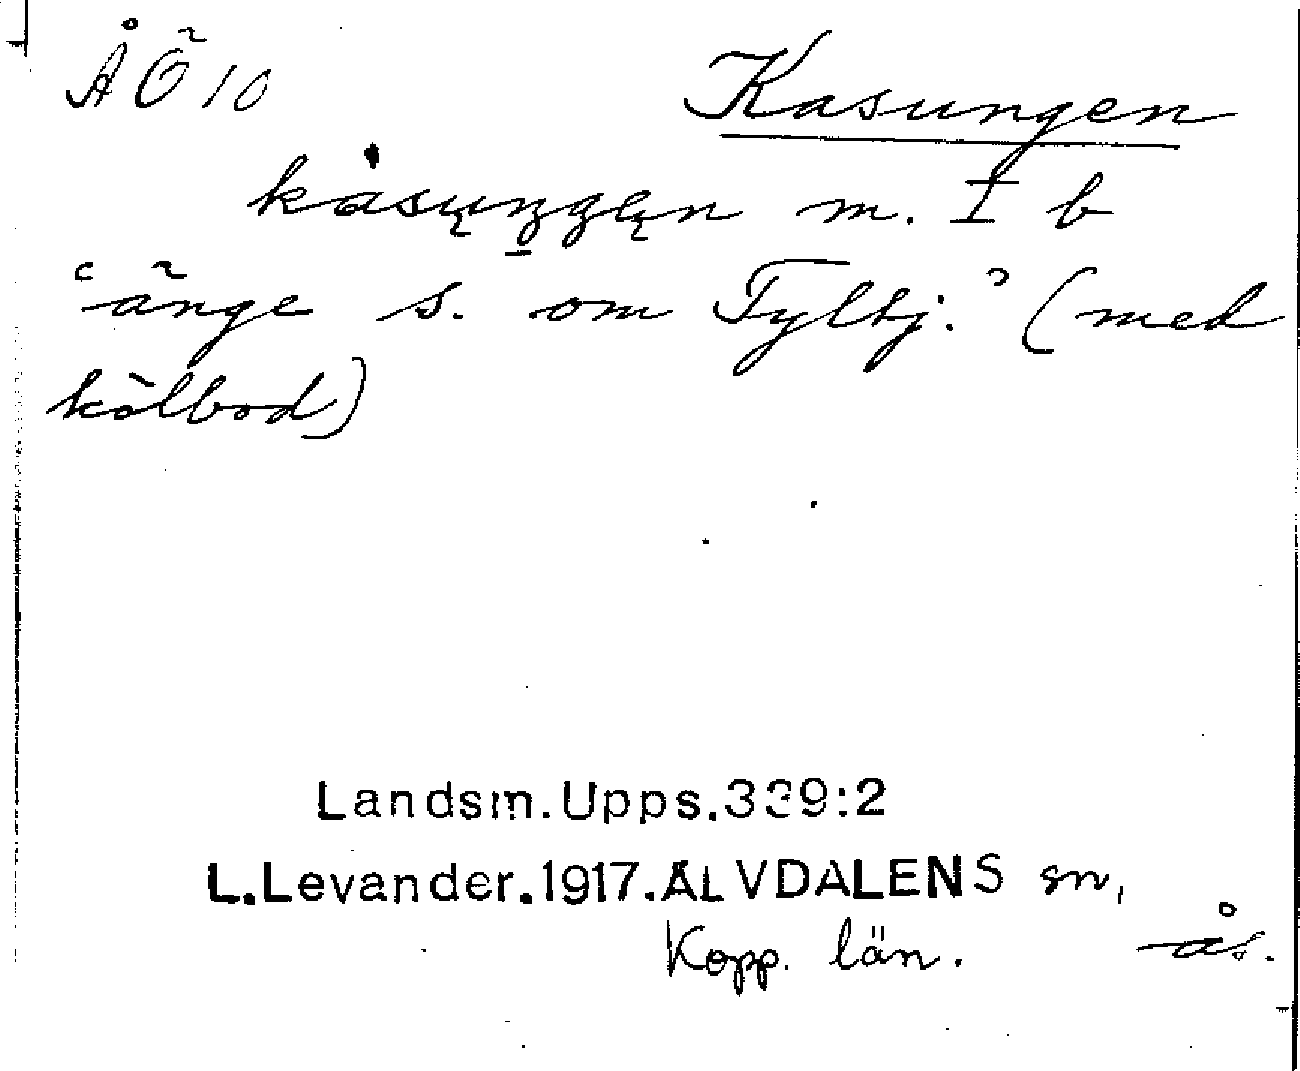 ÅÖ 10
Kasungen
kåsųŋgęn m. I b
"änge s. om Tylbj." (med
kölbod)
Landsm.Upps.339:2
L.Levander.1917.ÄLVDALENS sn,
Kopp. län.
ås.